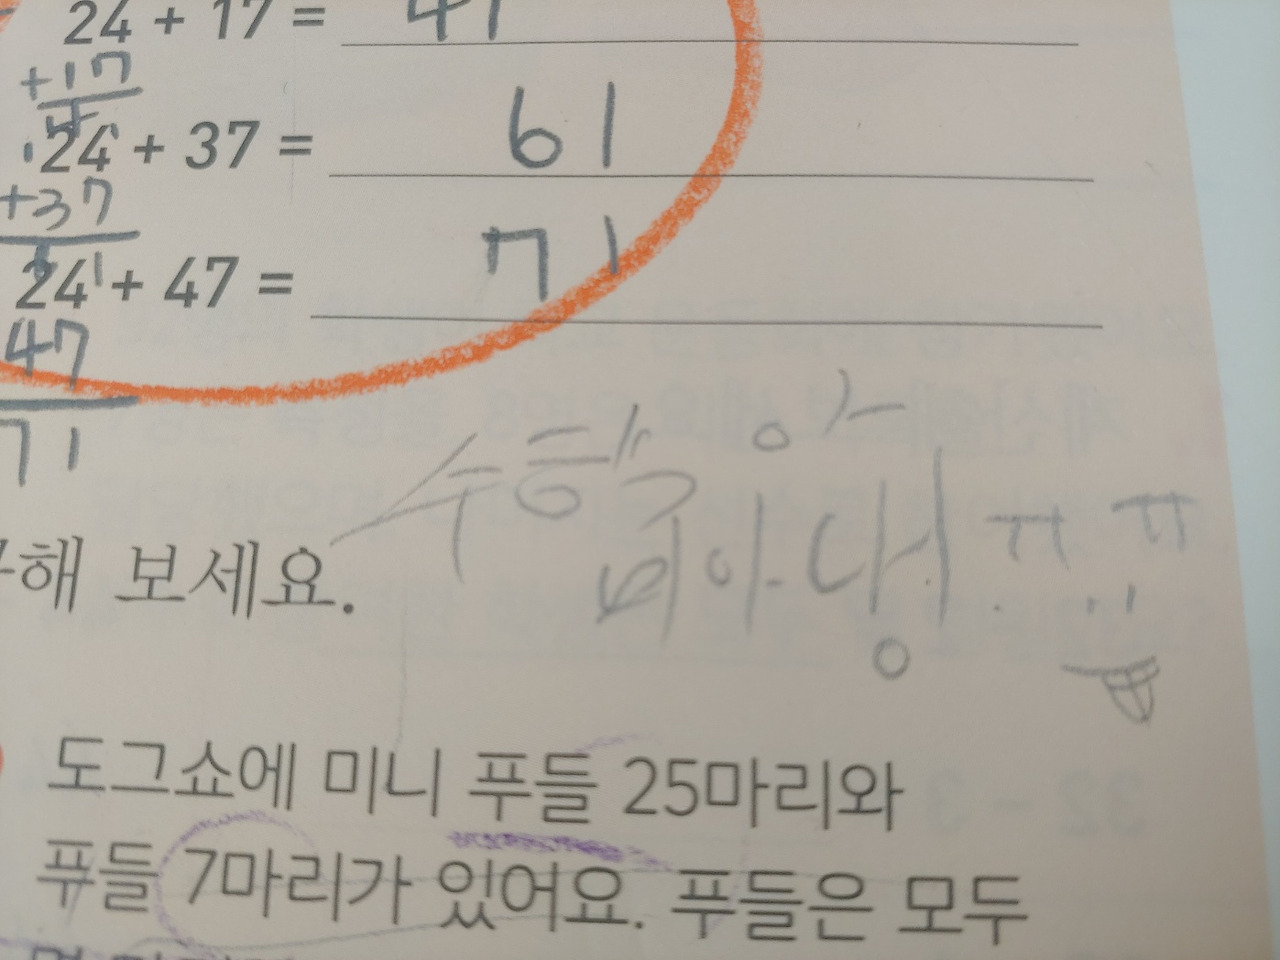 24 + 17 = 41
+17
24 + 37 = 61
+37
24 + 47 = 71
47
71
수학아
미아냉 ㅠㅠ
해 보세요.
도그쇼에 미니 푸들 25마리와
푸들 7마리가 있어요. 푸들은 모두